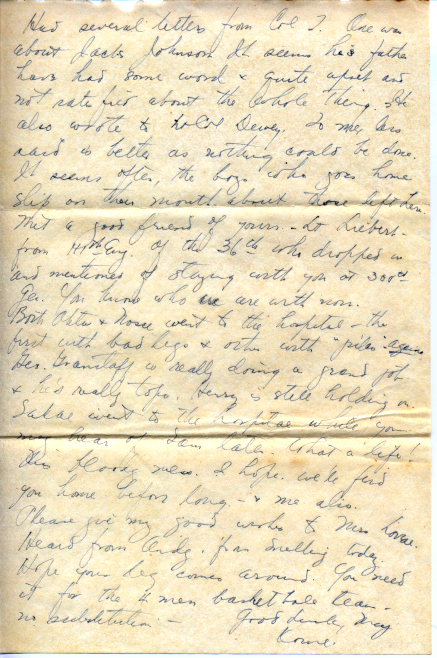 Had several letters from Col T. One was
about Jacks Johnson. It seems his father
have had some word & quite upset and
not satisfied about the whole thing. He
also wrote to Dewey. To me, less
said is better as nothing could be done.
It seems often, the boys who goes home
slip on their mouth about those left here.
Met a good friend of yours - Lt Liebert
from Hq. of the 36th who dropped in
and mentioned of staying with you at 300th
Gen. You know who we are with now.
Both & went to the hospital - the
first with bad legs & other with "piles" again
Geo. Grandstaff is really doing a grand job
& he's really tops. Harry is still holding on.
Sakae went to the hospital while you
may hear of Sam later. What a life!
This bloody mess. I hope we'll find
you home before long - & me also.
Please give my good wishes to Mrs
Heard from from Snelling today.
Hope your leg comes around. You need
it for the 4 men basketball team -
no substitution - Good luck, May